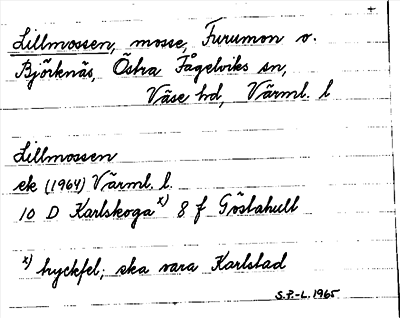 Lillmossen, mosse, Furumon o.
Björknäs, Östra Fågelviks sn,
Väse hd, Värml. l
Lillmossen
ek (1964) Värml. l.
10 D Karlskoga x) 8 f Göstahult
x) tryckfel; ska vara Karlstad
S.P.-L. 1965